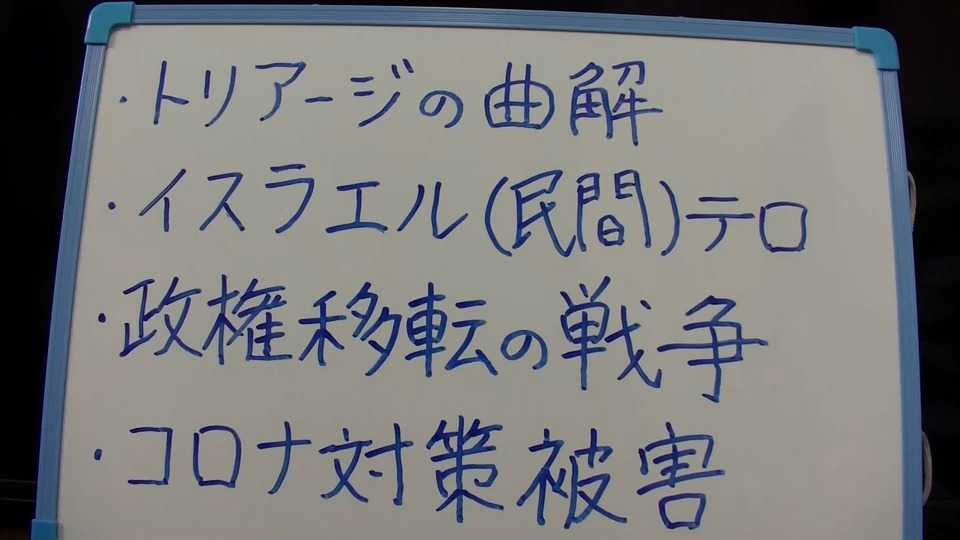 ・トリアージの曲解
・イスラエル(民間)テロ
・政権移転の戦争
・コロナ対策被害